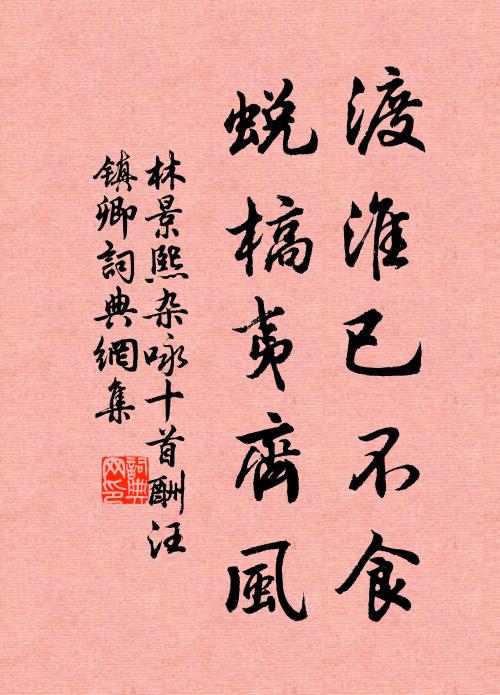 渡淮已不食
蜕槁夷齊風
林景熙杂咏十首酬汪
鎮卿詞典網集
詞典
网印